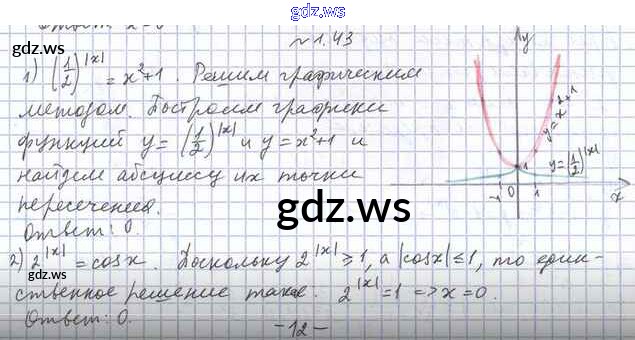 gdz.ws
Ответ: x=0
gdz.ws
№1.43
1) (1/2)^|x| = x²+1. Решим графическим
методом. Построим графики
функций y=(1/2)^|x| и y=x²+1 и
найдем абсциссу их точки
пересечения.
Ответ: 0.
y
y=x²+1
y=(1/2)^|x|
1
-1 0 1 x
gdz.ws
2) 2^|x| = cosx. Поскольку 2^|x| ≥ 1, а |cosx| ≤ 1, то един-
ственное решение такое: 2^|x| = 1 => x=0.
Ответ: 0.
-12-
gdz.ws